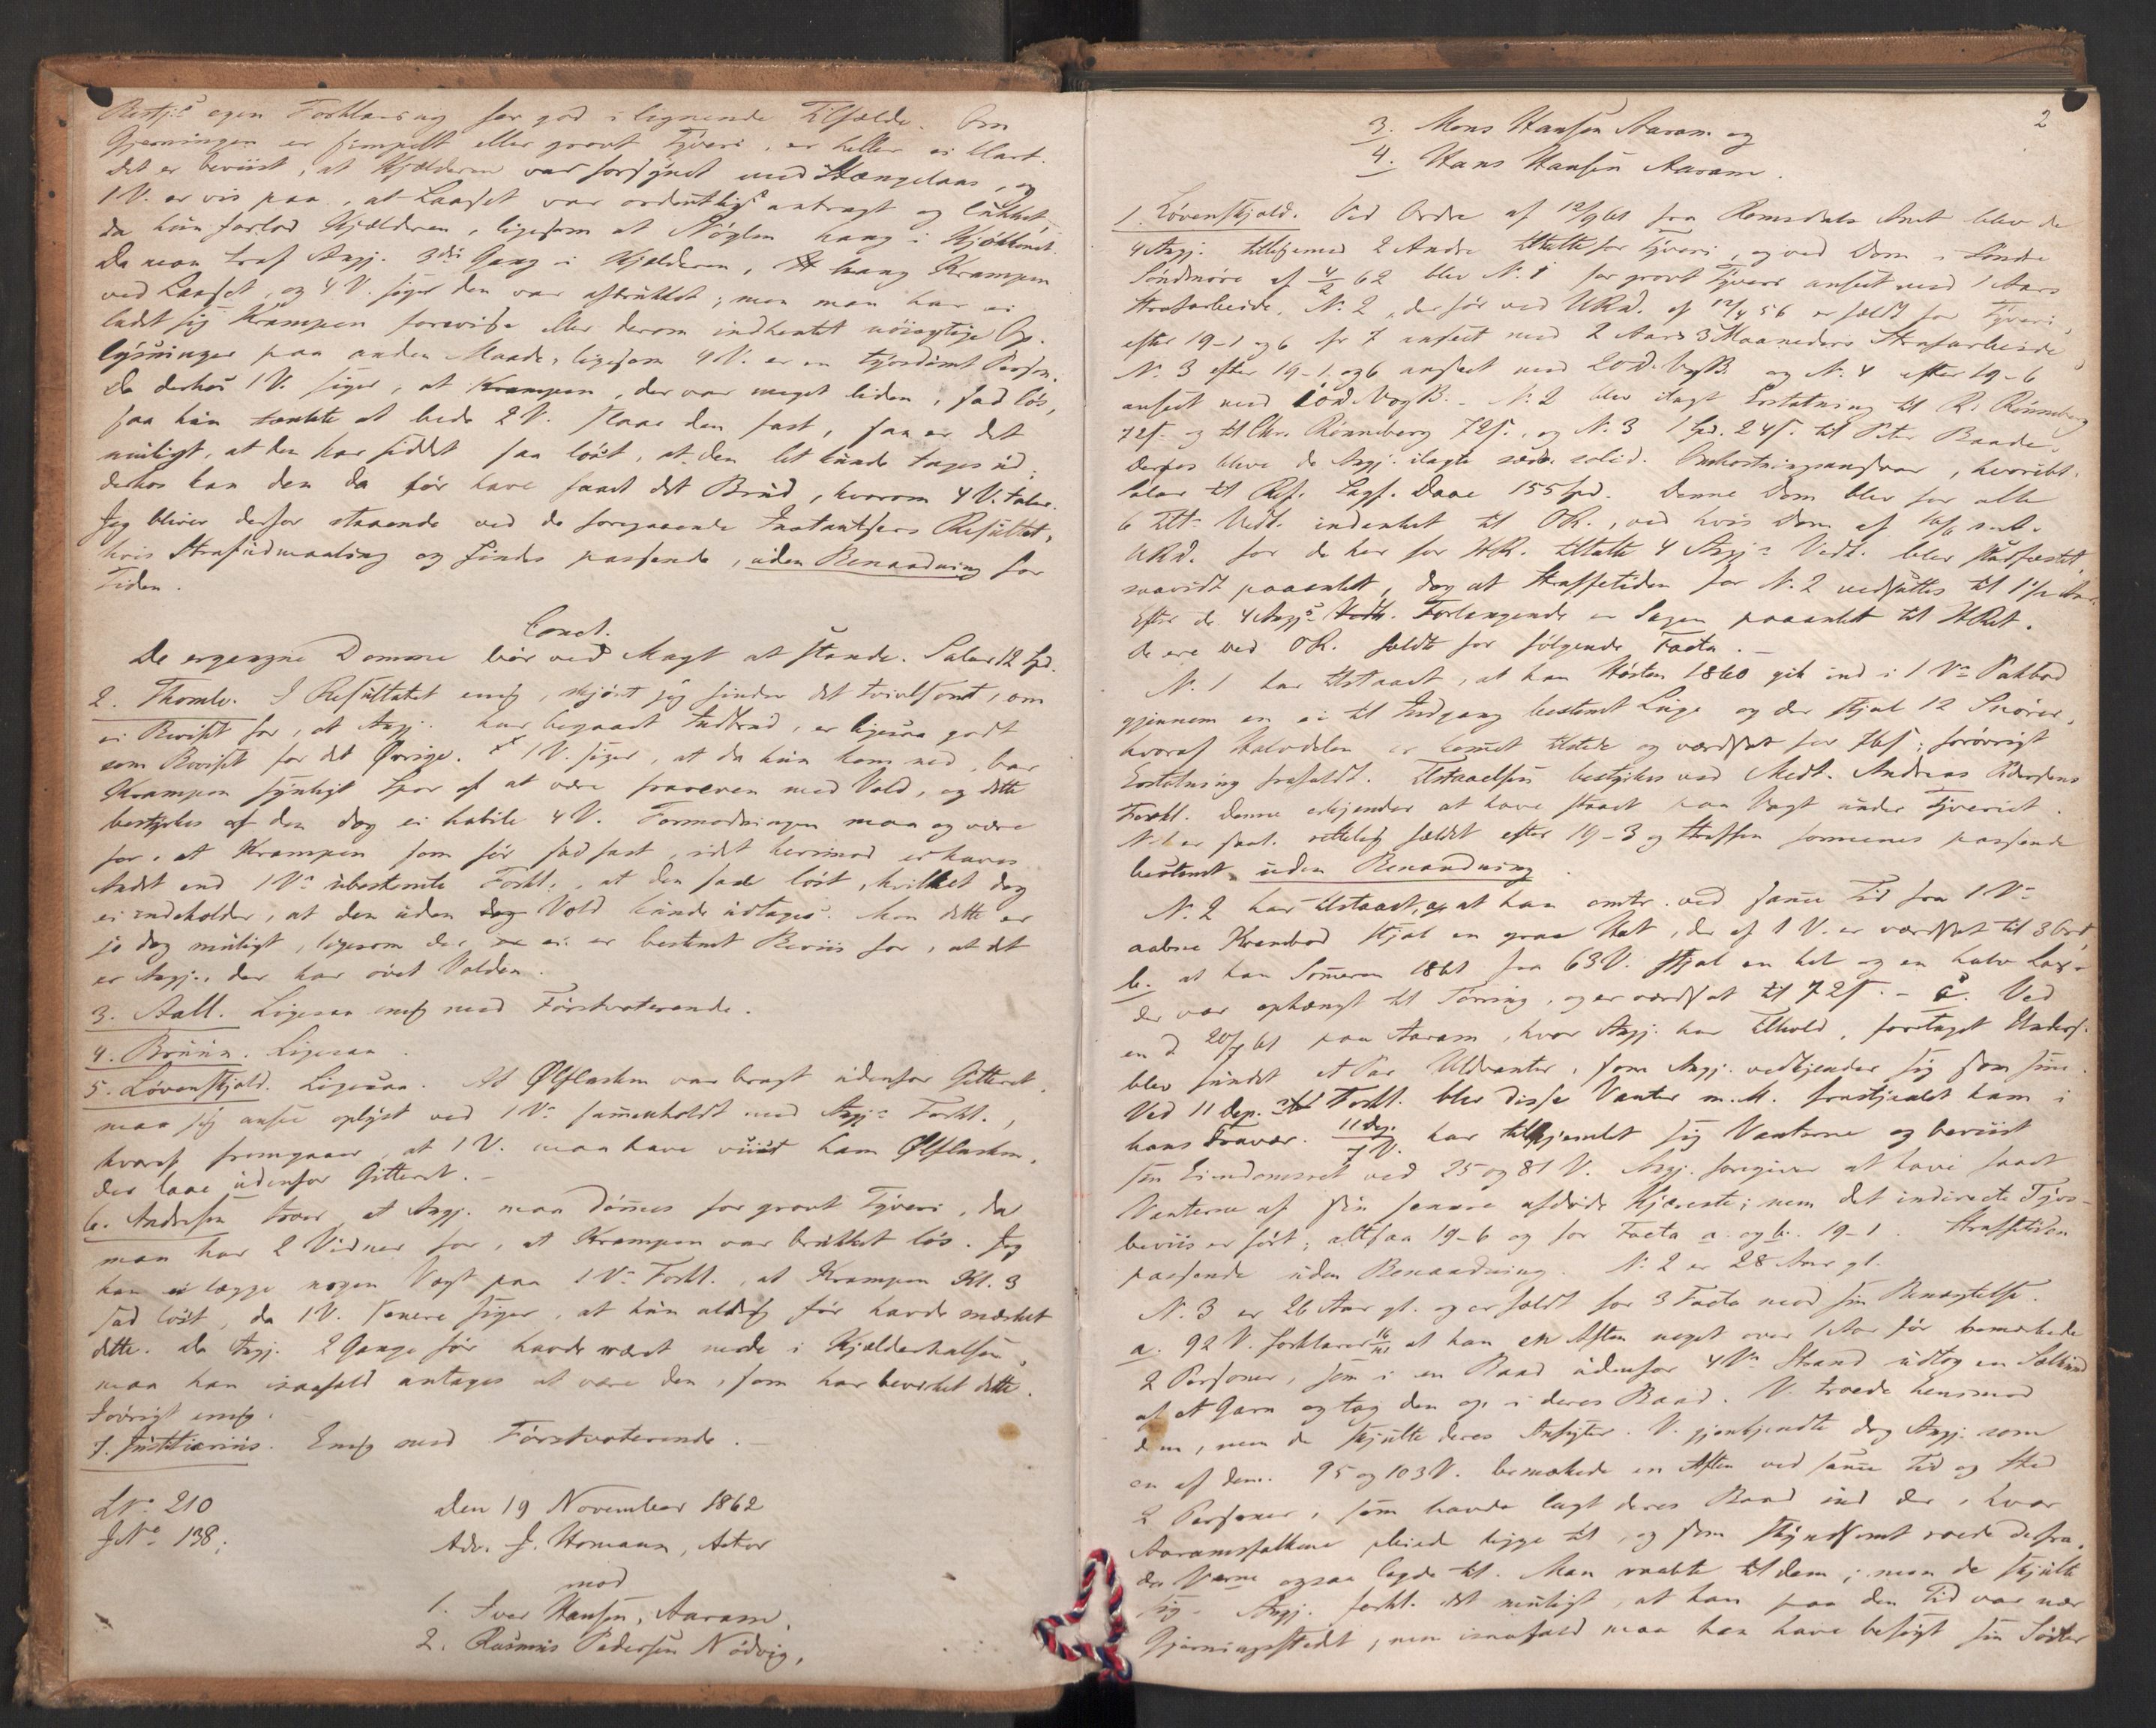 Restj.s egen Forklaring for god i lignende Tilfælde. Om
Gjerningen er simpelt eller grovt Tyveri, er heller ei klart.
Det er beviist, at Kjælderen var forsynet med Hængelaas, og
1 V. er vis paa, at Laaset var ordentligt anbragt og lukket
da hun forlod Kjælderen, ligesom at Nøglen hang i Kjøkkenet.
Da man traf Angj. 3die Gang i Kjælderen, hang Krampen
ved Laaset, og 4 V. siger den var afbrukket; men man har ei
ladet sig Krampen forevise eller derom indhentet nöiagtige Op-
lysninger paa anden Maade, ligesom 4 V. er en tyvdömt Person.
Da derhos 1 V. siger, at Krampen, der var meget liden, sad lös,
saa hun tænkte at bede 2 V. slaae den fast, saa er det
muligt, at den har siddet saa löst, at den let kunde tages ud.
derhos kan den da för have faaet det Brud, hvorom 4 V. taler.
Jeg bliver derfor staaende ved de foregaaende Instantsers Resultat,
hvis Strafudmaaling og findes passende, uden Benaadning for
Tiden.
Concl.
De ergangne Domme bør ved Magt at stande. Salær 12 Spd.
2. Thomle. I Resultatet enig, skjönt jeg finder det tvivlsomt, om
ei Beviset for, at Angj. har begaaet Indbrud, er ligesaa godt
som Beviset for det Øvrige. 1 V. siger, at da hun kom ned, bar
Krampen synligt Spor af at være frareven med Vold, og dette
bestyrkes af den dog ei habile 4 V. Formodningen maa og være
for, at Krampen som för sad fast, idet herimod ei haves
Andet end 1 V.s ubestemte Forkl., at den sad löst, hvilket dog
ei indeholder, at den uden Vold kunde udtages. Men dette er
jo dog muligt, ligesom der ei er bestemt Beviis for, at det
er Angj., der har övet Volden.
3. Aall. Ligesaa enig med Förstvoterende.
4. Bruun. Ligesaa.
5. Løvenskjold. Ligesaa. At Ølflasken var bragt udenfor Gitteret,
maa jeg ansee oplyst ved 1 V.s sammenholdt med Angj.s Forkl.,
hvoraf fremgaaer, at 1 V. maa have viist ham Ølflasken,
der laae udenfor Gitteret.
6. Andresen troer, at Angj. maa dömmes for grovt Tyveri, da
man har 2 Vidner for, at Krampen var brukket lös. Jeg
kan ei lægge nogen Vægt paa 1 V.s Forkl., at Krampen Kl. 3
sad löst, da 1 V. senere siger, at hun aldrig för havde mærket
dette. Da Angj. 2 Gange för havde været nede i Kjælderhalsen,
maa han isaafald antages at være den, som har bevirket dette.
Iövrigt enig.
7. Justitiarius. Enig med Förstvoterende.
LNo. 210
JNo. 138;
Den 19 November 1862
Adv. J. Homann, Actor
mod
1. Iver Hansen Aaram,
2. Rasmus Pedersen Nödvig,
2
3. Mons Hansen Aaram og
4. Hans Hansen Aaram.
1. Løvenskjold. Ved Ordre af 12/9 61 fra Romsdals Amt blev de
4 Angj. tilligemed 2 Andre tiltalte for Tyveri, og ved Dom i Söndre
Söndmöre af 4/2 62 blev N. 1 for grovt Tyveri anseet med 1 Aars
Strafarbeide, N. 2, der för ved URD. af 12/4 56 er fældt for Tyveri,
efter 19-1 og 6 cfr 7 anseet med 2 Aars 3 Maaneders Strafarbeide,
N. 3 efter 19-1 og 6 anseet med 20 D. VogB. og N. 4 efter 19-6
anseet med 10 D VogB. N. 2 blev ilagt Erstatning til R. Rönneberg
72ſ. og til Chr. Rönneberg 72ſ., og N. 3 1 Spd. 24ſ. til Peter Baade.
Derhos bleve de Angj. ilagte solid. Omkostningsansvar, heribl.
Salær til Ref. Sagf. Daae 155 Spd. Denne Dom blev for alle
6 Tilt. Vedk. indanket til OR., ved hvis Dom af
URD. for de her for HR. tiltalte 4 Angj.s Vedk. blev stadfæstet,
saavidt paaanket, dog at Straffetiden for N. 2 nedsattes til 1 1/2 Aar.
Efter de 4 Angj.s Forlangende er Sagen paaanket til HRet.
de ere ved OR. fældte for følgende Facta.
N. 1 har tilstaaet, at han Hösten 1860 gik ind i 1 V.s Pakbod
gjennem en ei til Indgang bestemt Luge og der stjal 12 Snörer,
hvoraf Halvdelen er kommet tilstede og værdsat for 76ſ; forövrigt
Erstatning frafaldt. Tilstaaelsen bestyrkes ved Medt. Andreas Pedersens
Forkl. Denne erkjender at have staaet paa Vagt under Tyveriet.
N. 1 er saal. rettelig fældet efter 19-3 og Straffen formenes passende
bestemt, uden Benaadning.
N. 2 har tilstaaet, a, at han omtr. ved samme Tid fra 1 V.s
aabne Krambod stjal en graa Hat, der af 1 V. er værdsat til 3 Ort,
b. at han Sommeren 1861 fra 63 V. stjal en hel og en halv Lax,
der var ophængt til Törring, og er værdsat til 72ſ. – c. Ved
en d 20/7 61 paa Aaram, hvor Angj. har Tilhold, foretaget Unders.
blev fundet et Par Uldvanter, som Angj. vedkjender sig som sine.
Ved 11 Dep. Forkl. blev disse Vanter m. M. frastjaalet ham i
hans Fravær. 11 Dep. / 7 V. har tilkjendt sig Vanterne og beviist
sin Eiendomsret ved 25 og 81 V. Angj. foregiver at have faaet
Vanterne af sin senere afdöde Kjæreste; men det indirecte Tyvs-
beviis er fört; altsaa 19-6 og for Facta a. og b. 19-1. Straffetiden
passende uden Benaadning. N. 2 er 28 Aar gl.
N. 3 er 26 Aar gl. og er fældt for 3 Facta mod sin Benægtelse.
a. 92 V. forklarer at han en Aften noget over 1 Aar för bemærkede
2 Personer, som i en Baad udenfor 4 V.s Strand udtog en Sælhund
af et Garn og tog den op i deres Baad. V. troede henimod
dem, men de skjulte deres Ansigter. V. gjenkjendte dog Angj. som
en af dem. 95 og 103 V. bemærkede en Aften ved samme Tid og Sted
2 Personer, som havde lagt deres Baad ind der, hvor
Aaramsfolkene pleiede ligge til, og som skyndsomt roede derfra,
da Vnerne ogsaa lagde til. Man raabte til dem, men de skjulte
sig. Angj. forkl. det muligt, at han paa den Tid var nær
Gjerningsstedet, men isaafald maa han have besögt sin Söster